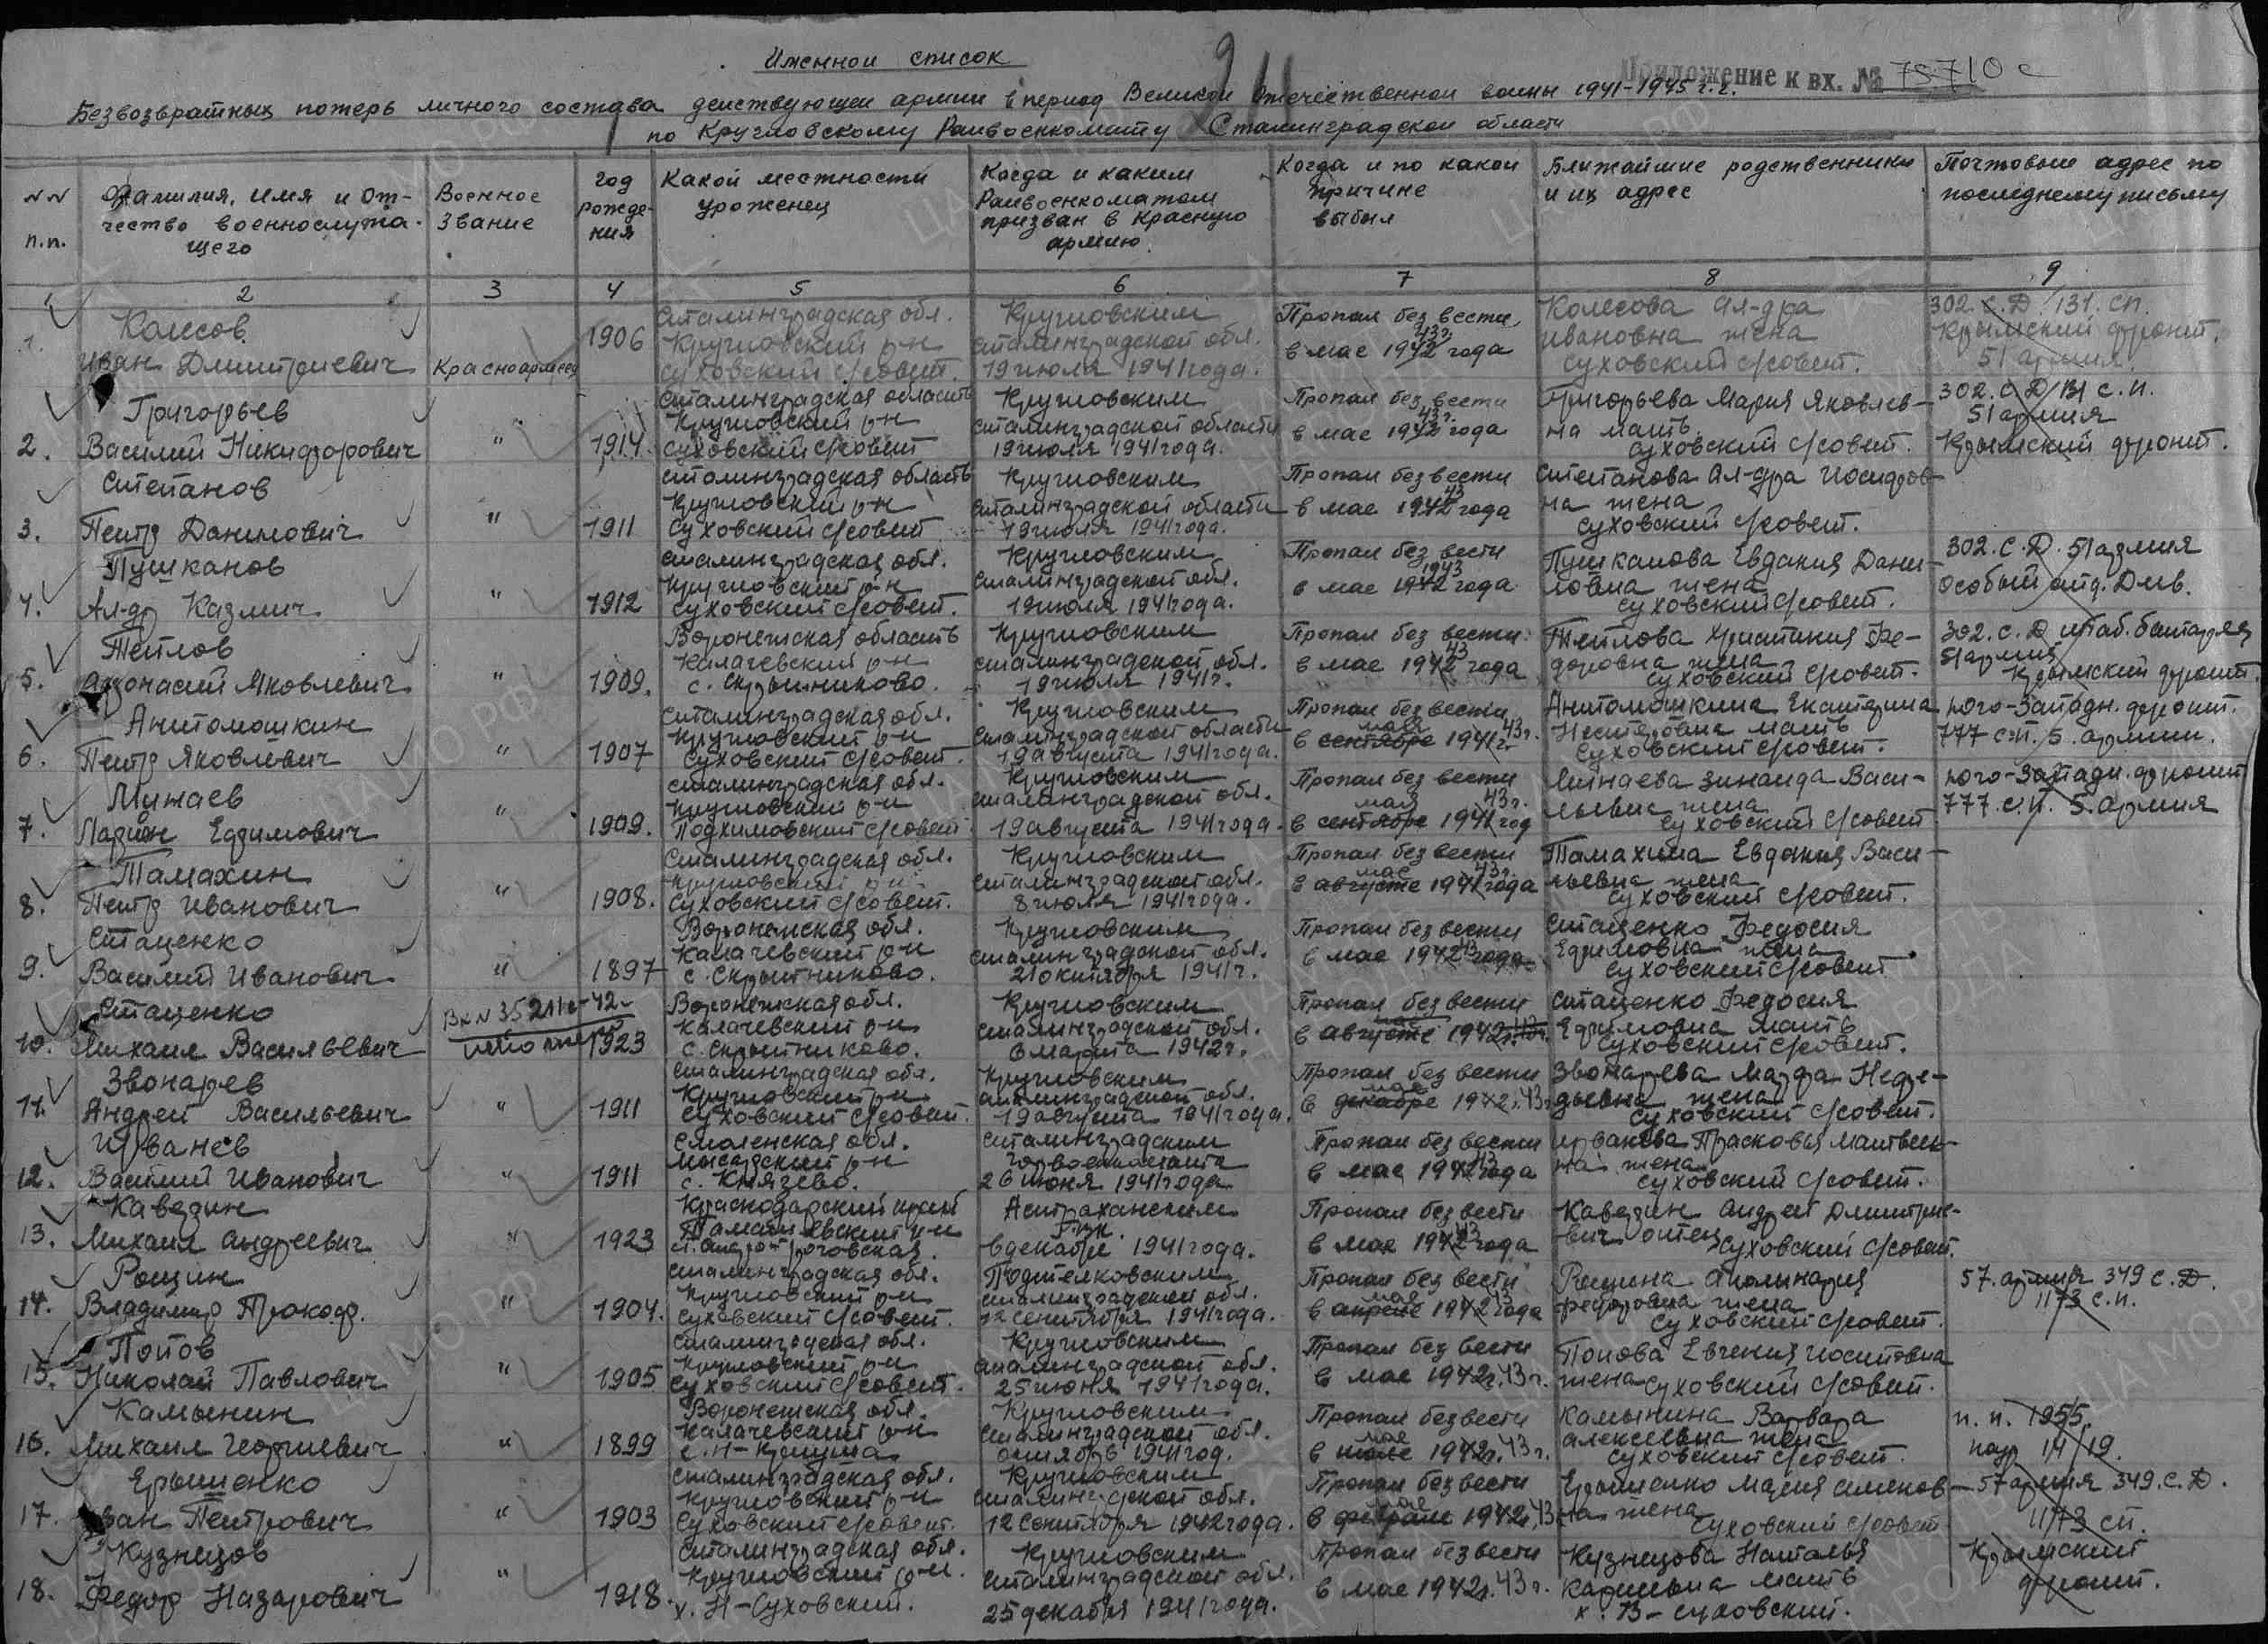 Именной список
Приложение к вх. № 75710 с
Безвозвратных потерь личного состава действующей армии в период Великой Отечественной войны 1941-1945 г.г.
по Кругловскому Райвоенкомату Сталинградской области
NN п.п. Фамилия, имя и отчество военнослужащего Военное звание год рождения Какой местности уроженец Когда и каким Райвоенкоматом призван в Красную армию Когда и по какой причине выбыл Ближайшие родственники и их адрес Почтовый адрес по последнему письму
2 3 4 5 6 7 8 9
1. Колесов Иван Дмитриевич Красноармеец 1906 Сталинградская обл. Кругловский р-н Суховский с/совет. Кругловским Сталинградской обл. 19 июля 1941 года. Пропал без вести в мае 1942 43 г. года Колесова Ал-дра Ивановна жена Суховский с/совет. 302. с.Д. 131. сп. Крымский фронт. 51 армия.
2. Григорьев Василий Никифорович " 1914. Сталинградская область Кругловский р-н Суховский с/совет Кругловским Сталинградской области 19 июля 1941 года. Пропал без вести в мае 1942 43 г. года Григорьева Мария Яковлевна мать Суховский с/совет. 302. с.Д/131 с.п. 51 армия Крымский фронт.
3. Степанов Петр Данилович " 1911 Сталинградская область Кругловский р-н Суховский с/совет Кругловским Сталинградской области 19 июля 1941 года. Пропал без вести в мае 1942 43 года Степанова Ал-дра Иосифовна жена Суховский с/совет.
4. Пушканов Ал-др Казмич " 1912 Сталинградская обл. Кругловский р-н Суховский с/совет. Кругловским Сталинградской обл. 19 июля 1941 года. Пропал без вести в мае 1942 1943 года Пушканова Евдакия Даниловна жена Суховский с/совет. 302. с.Д. 51 армия особый отд. Див.
5. Теплов Афонасий Яковлевич " 1909. Воронежская область Калачевский р-н с. Скрыпниково. Кругловским Сталинградской обл. 19 июля 1941 г. Пропал без вести в мае 1942 43 года Теплова Христиния Федоровна жена Суховский с/совет. 302. с.Д штаб. батарея 51 армия Крымский фронт.
6. Антомошкин Петр Яковлевич " 1907 Сталинградская обл. Кругловский р-н Суховский с/совет. Кругловским Сталинградской области 19 августа 1941 года. Пропал без вести в сентябре мая 1941 г. 43 г. Антомошкина Екатерина Нестеровна мать Суховский с/совет. Юго-Западн. фронт. 777 с.п. 5. армии.
7. Минаев Ларион Ефимович " 1909. Сталинградская обл. Кругловский р-н Подхимовский с/совет Кругловским Сталинградской обл. 19 августа 1941 года. Пропал без вести в сентябре мая 1941 год 43 г. Минаева Зинаида Васильевна жена Суховский с/совет Юго-Западн. фронт 777. с.п. 5. армия
8. Тамахин Петр Иванович " 1908. Сталинградская обл. Кругловский р-н Суховский с/совет. Кругловским Сталинградской обл. 8 июля 1941 года. Пропал без вести в августе мае 1941 года 43 г. Тамахина Евдакия Васильевна жена Суховский с/совет.
9. Стаценко Василий Иванович " 1897 Воронежская обл. Калачевский р-н с. Скрыпниково. Кругловским Сталинградской обл. 21 октября 1941 г. Пропал без вести в мае 1942 43 года Стаценко Федосия Ефимовна жена Суховский с/совет
10. Стаценко Михаил Васильевич 1923 Воронежская обл. Калачевский р-н с. Скрыпниково. Кругловским Сталинградской обл. 8 марта 1942 г. Пропал без вести в августе мае 1942 г. 43 г. Стаценко Федосия Ефимовна мать Суховский с/совет.
11. Звонарев Андрей Васильевич " 1911 Сталинградская обл. Кругловский р-н Суховский с/совет. Кругловским Сталинградской обл. 19 августа 1941 года. Пропал без вести в декабре мае 1942 г. 43 г. Звонарева Марфа Недедьевна жена Суховский с/совет.
12. Ирванев Василий Иванович " 1911 Смоленская обл. р-н с. Князево. Сталинградским горвоенкомата 26 июня 1941 года Пропал без вести в мае 1942 43 года Ирванева Прасковья Матвеевна жена Суховский с/совет.
13. Каведин Михаил Андреевич " 1923 Краснодарский край р-н Астраханским ГВК. декабре 1941 года. Пропал без вести в мае 1942 43 года Каведин Андрей Дмитриевич отец Суховский с/совет.
14. Рощин Владимир Прокоф. " 1904. Сталинградская обл. Кругловский р-н Суховский с/совет. Подтелковским Сталинградской обл. 12 сентября 1941 года. Пропал без вести в апреле мая 1942 43 года Рощина Аполинария Федоровна жена Суховский с/совет. 57. армия 349 с.Д. 1173 с.п.
15. Попов Николай Павлович " 1905 Сталинградская обл. Кругловский р-н Суховский с/совет. Кругловским Сталинградской обл. 25 июня 1941 года. Пропал без вести в мае 1942 г. 43 г. Попова Евгения Иосиповна жена Суховский с/совет.
16. Камынин Михаил Георгиевич " 1899 Воронежская обл. Калачевский р-н с. Н-Криуша Кругловским Сталинградской обл. октябрь 1941 год. Пропал без вести в июле мае 1942 г. 43 г. Камынина Варвара Алексеевна жена Суховский с/совет. п.п. 1955. 14/19.
17. Ярыщенко Иван Петрович " 1903 Сталинградская обл. Кругловский р-н Суховский с/совет. Кругловским Сталинградской обл. 12 сентября 1942 года. Пропал без вести в феврале мае 1942 г. 43 Ярыщенко Мария Семеновна жена Суховский с/совет 57 армия 349. с.Д. 1173 сп.
18. Кузнецов Федор Назарович " 1918. Сталинградская обл. Кругловский р-н. х. Н-Суховский. Кругловским Сталинградской обл. 25 декабря 1941 года. Пропал без вести в мае 1942 г. 43 г. Кузнецова Наталья Карповна мать х. В-Суховский. Крымский фронт.